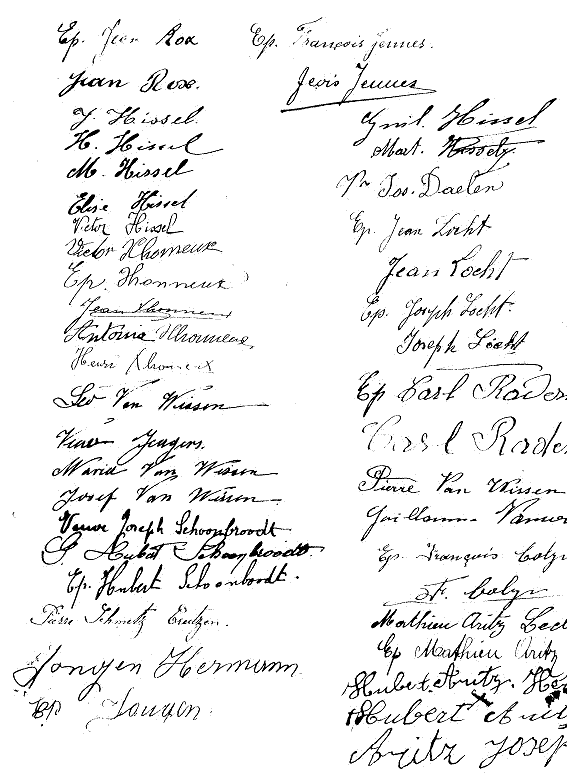 Ep. Jean Rox
Jean Rox.
J. Hissel.
H. Hissel
M. Hissel
Elise Hissel
Victor Hissel
Victor Xhonneux
Ep. Xhonneux
Jean Xhonneux
Antonia Xhonneux
Henri Xhonneux
Leo Van Wissen
Veuve Jongens.
Maria Van Wissen
Josef Van Wissen
Veuve Joseph Schoonbroodt
Hubert Schoonbroodt
Ep. Hubert Schoonbroodt.
Pierre Schmetz
Jongen Hermann
Ep Jongen
Ep. François Jennes.
Jennes
Emil. Hissel
Mart.
Jos. Daelen
Ep. Jean Locht
Jean Locht
Ep. Joseph Locht.
Joseph Locht
Ep Carl Rader
Carl Rader
Pierre Van Wissen
Guillaume
Ep. François
Mathieu Aritz
Ep Mathieu Aritz
Hubert Aritz.
Hubert
Aritz Josep